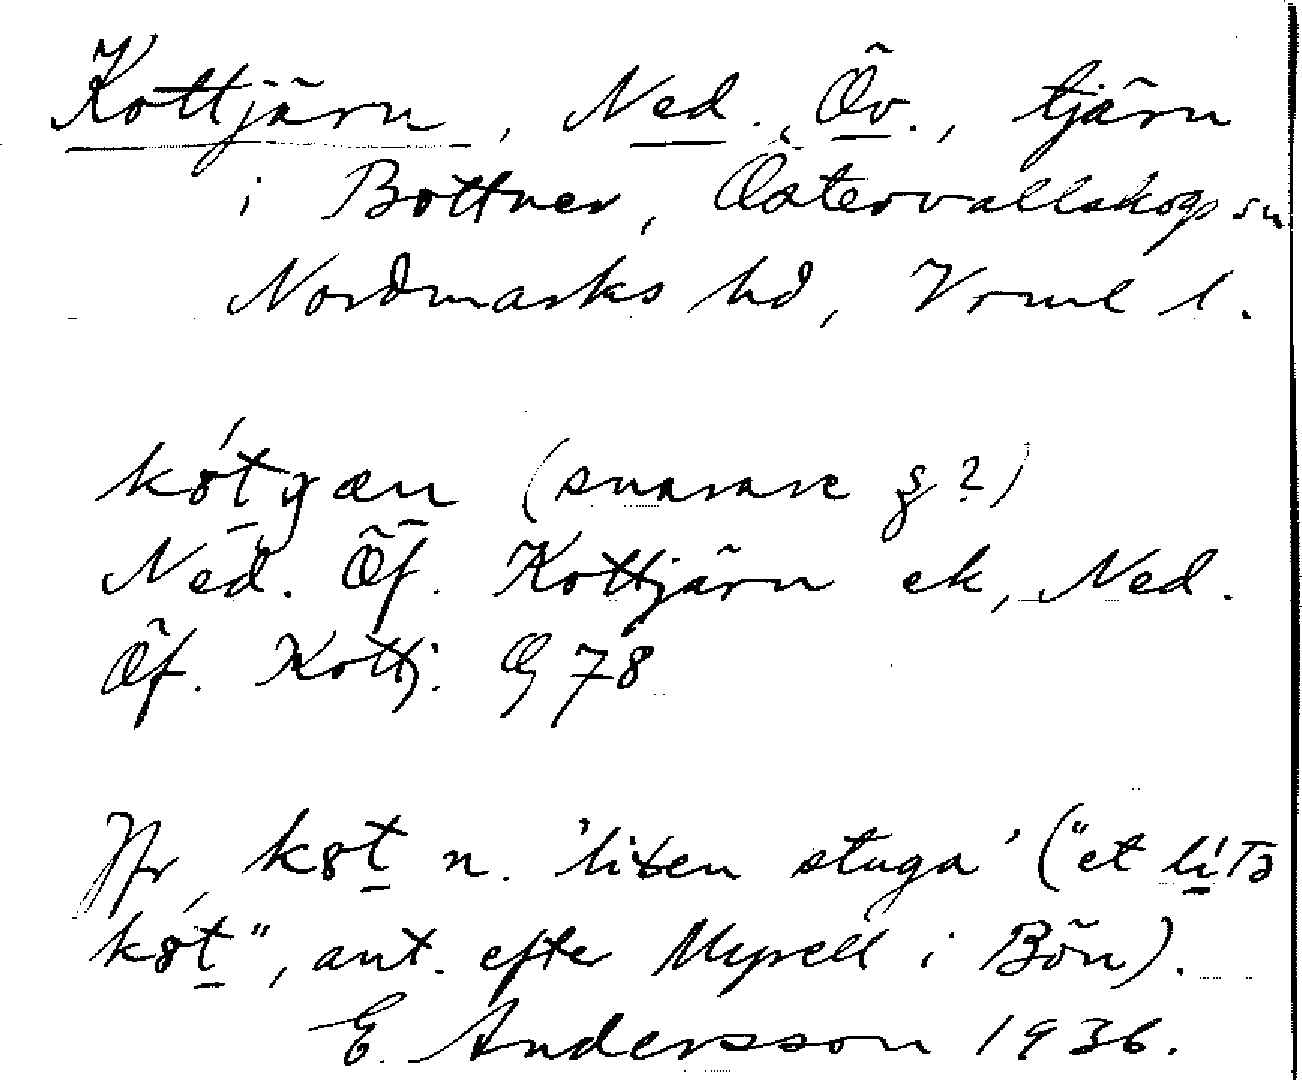 Kottjärn, Ned., Öv., tjärn
i Bottnen, Östervallskogs sn
Nordmarks hd, Vrml l.
(snarare ?)
Ned. Öf. Kottjärn ek, Ned.
Öf. Kottj. G 78
Jfr n. 'liten stuga' ("et
", ant. efter Myrell i Bön).
E. Andersson 1936.